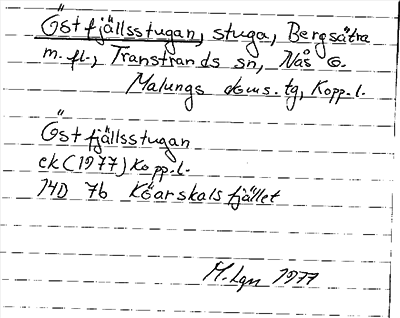 Östfjällsstugan, stuga, Bergsätra
m. fl., Transtrands sn, Nås o.
Malungs doms. tg, Kopp. l.
Östfjällsstugan
ek (1977) Kopp. l.
14D 7b Köarskalsfjället
M. Lgn 1977